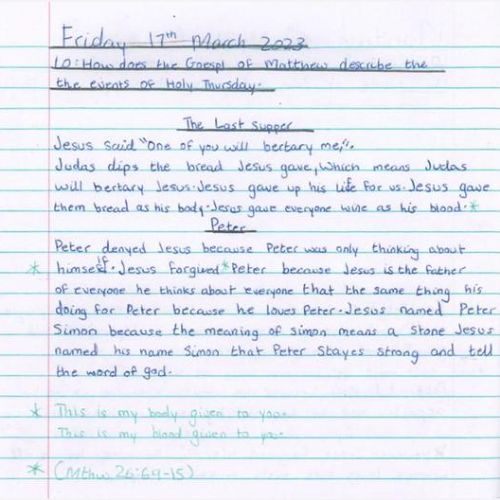 Friday 17th March 2023
LO: How does the Goespl of Matthew describe the
the events of Holy Thursday.
The Last Supper
Jesus said "One of you will bertary me,".
Judas dips the bread Jesus gave, which means Judas
will bertary Jesus. Jesus gave up his life for us. Jesus gave
them bread as his body. Jesus gave everyone wine as his blood. *
Peter
Peter denyed Jesus because Peter was only thinking about
* himself. Jesus forgived * Peter because Jesus is the father
of everyone he thinks about everyone that the same thing his
doing for Peter because he loves Peter. Jesus named Peter
Simon because the meaning of simon means a stone Jesus
named his name Simon that Peter stayes strong and tell
the word of god.
* This is my body given to you.
This is my blood given to you.
* (Mthw 26:69-15)